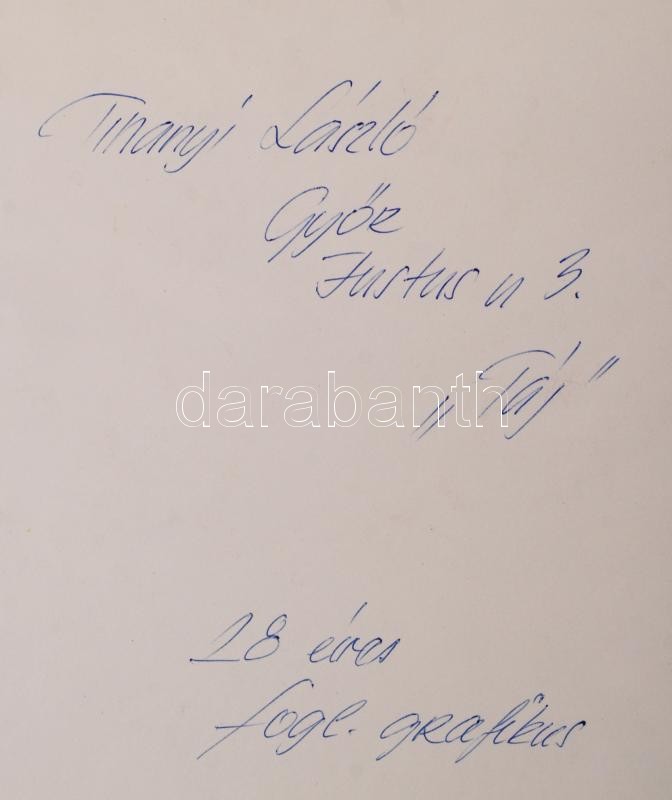 Tihanyi László
Győr
Justus u 3.
darabanth
„Táj”
28 éves
fogl. grafikus